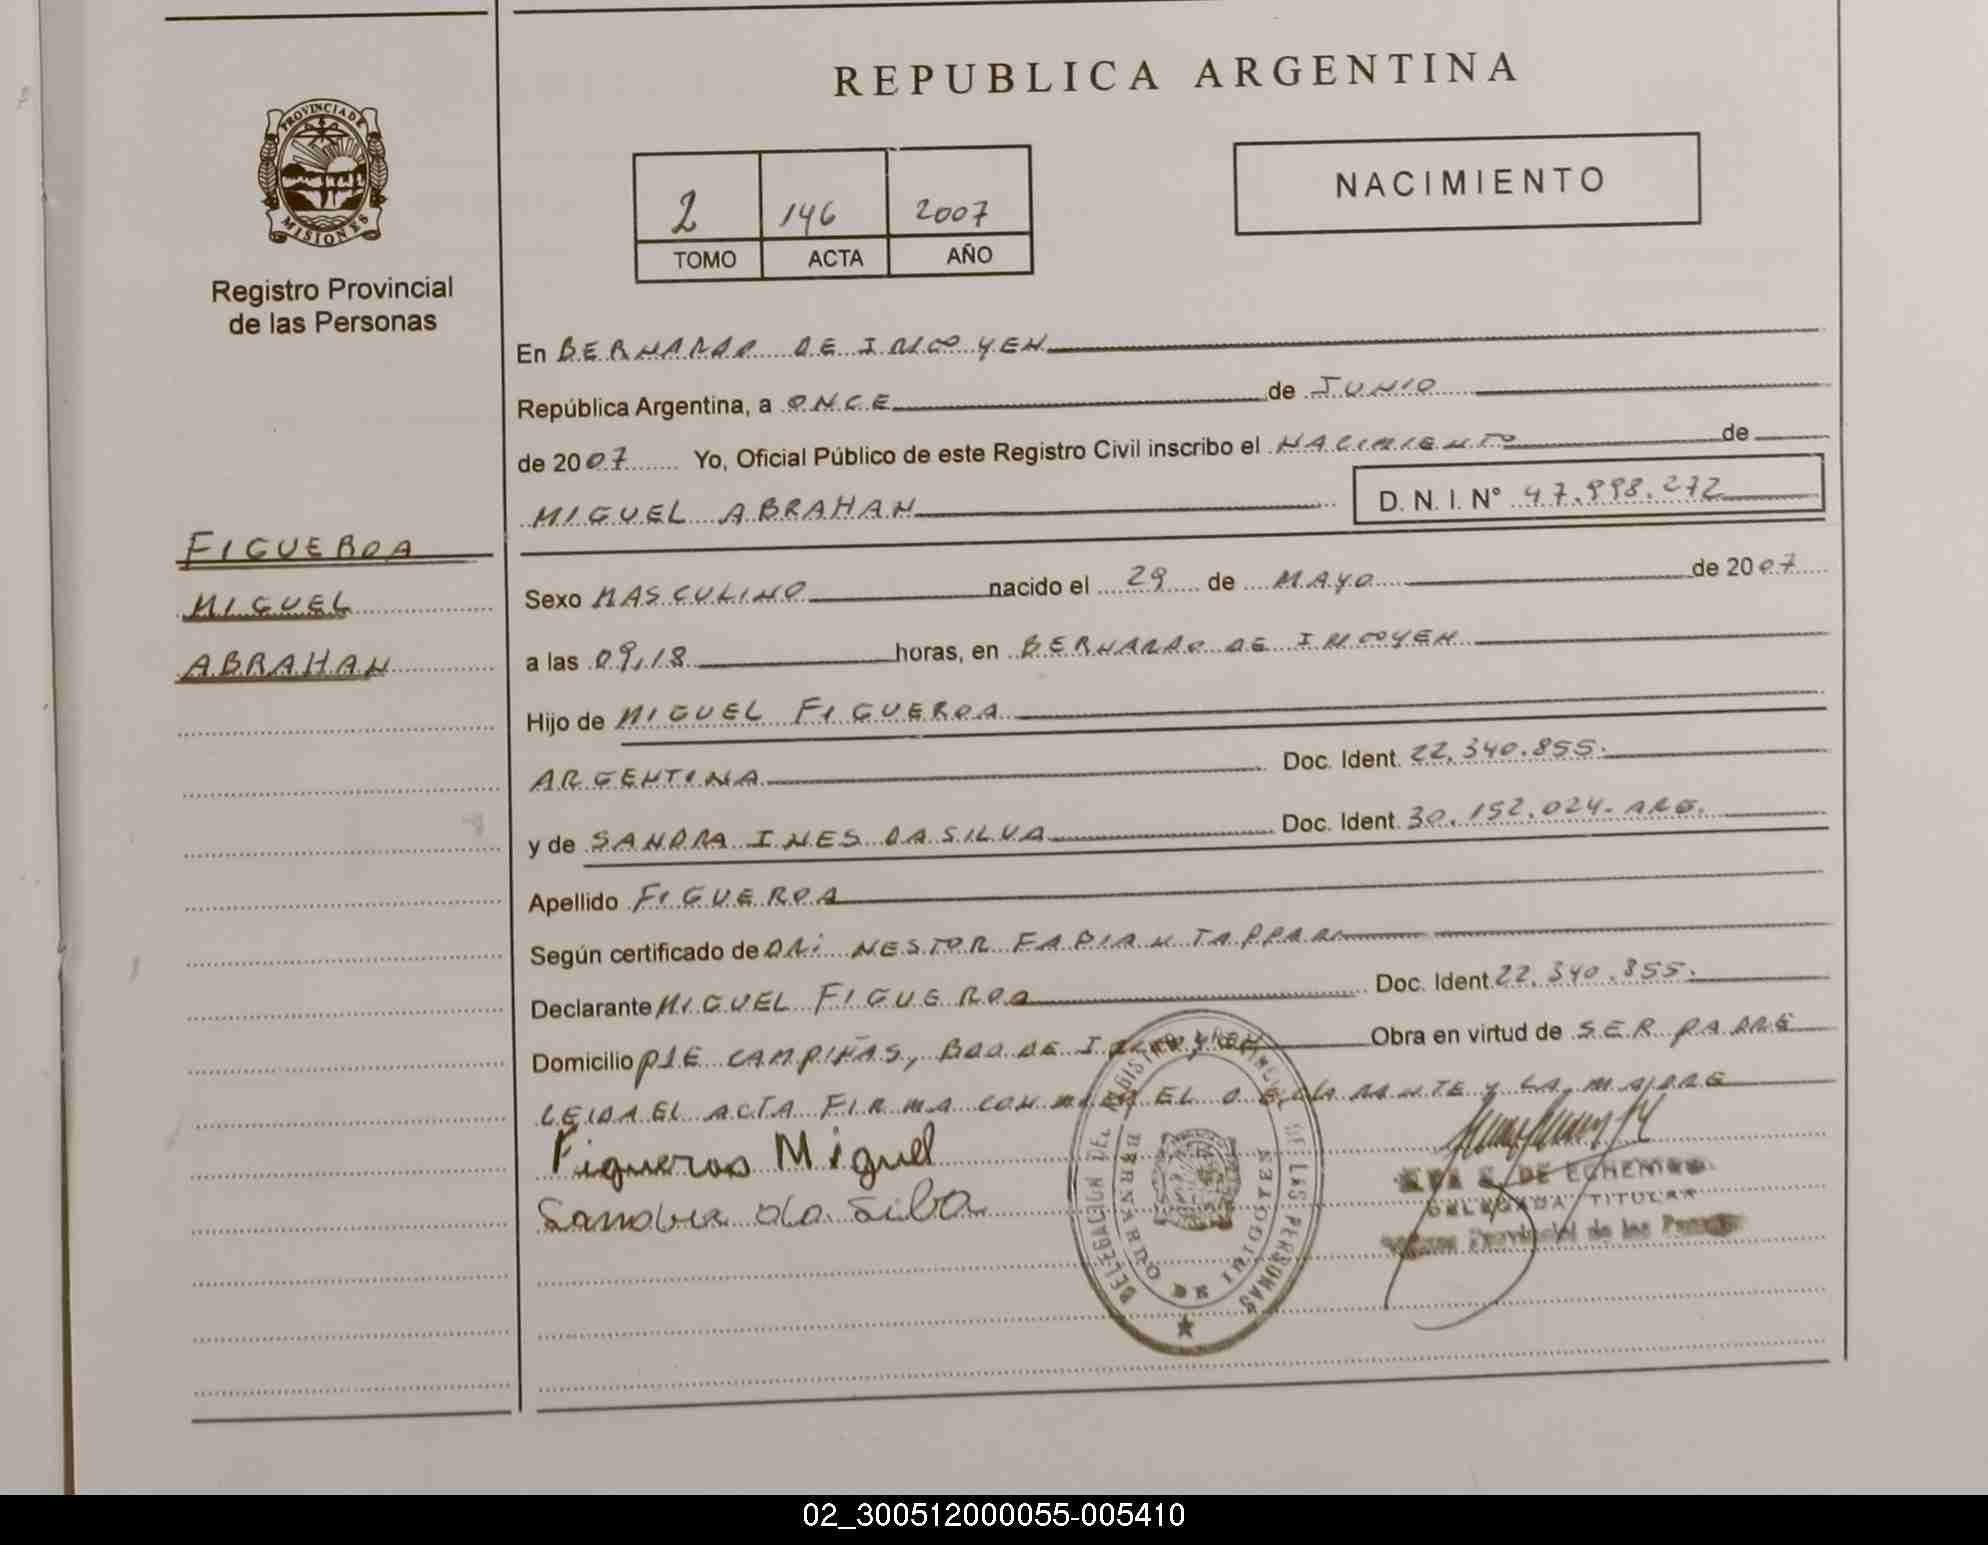 REPUBLICA ARGENTINA
PROVINCIA DE
MISIONES
Registro Provincial
de las Personas
2 146 2007
TOMO ACTA AÑO
NACIMIENTO
En BERNARDO DE IRIGOYEN
República Argentina, a ONCE de JUNIO
de 2007 Yo, Oficial Público de este Registro Civil inscribo el NACIMIENTO de
MIGUEL ABRAHAN D. N. I. N° 47.998.272
FIGUEROA
MIGUEL
ABRAHAN
Sexo MASCULINO nacido el 29 de MAYO de 2007
a las 09,18 horas, en BERNARDO DE IRIGOYEN
Hijo de MIGUEL FIGUEROA
ARGENTINA Doc. Ident. 22.340.855.
y de SANDRA INES DA SILVA Doc. Ident. 30.152.024. ARG.
Apellido FIGUEROA
Según certificado de NESTOR FABIAN TAPPARI
Declarante MIGUEL FIGUEROA Doc. Ident. 22.340.855.
Domicilio PJE CAMPIÑAS, BDO DE IRIGOYEN Obra en virtud de SER PADRE
LEIDA EL ACTA FIRMA CONMIGO EL DECLARANTE Y LA MADRE
Figueroa Miguel
Sandra da Silva
DELEGACION DEL REGISTRO PROVINCIAL DE LAS PERSONAS
BERNARDO DE IRIGOYEN
DELEGADA TITULAR
Provincial de las
02_300512000055-005410